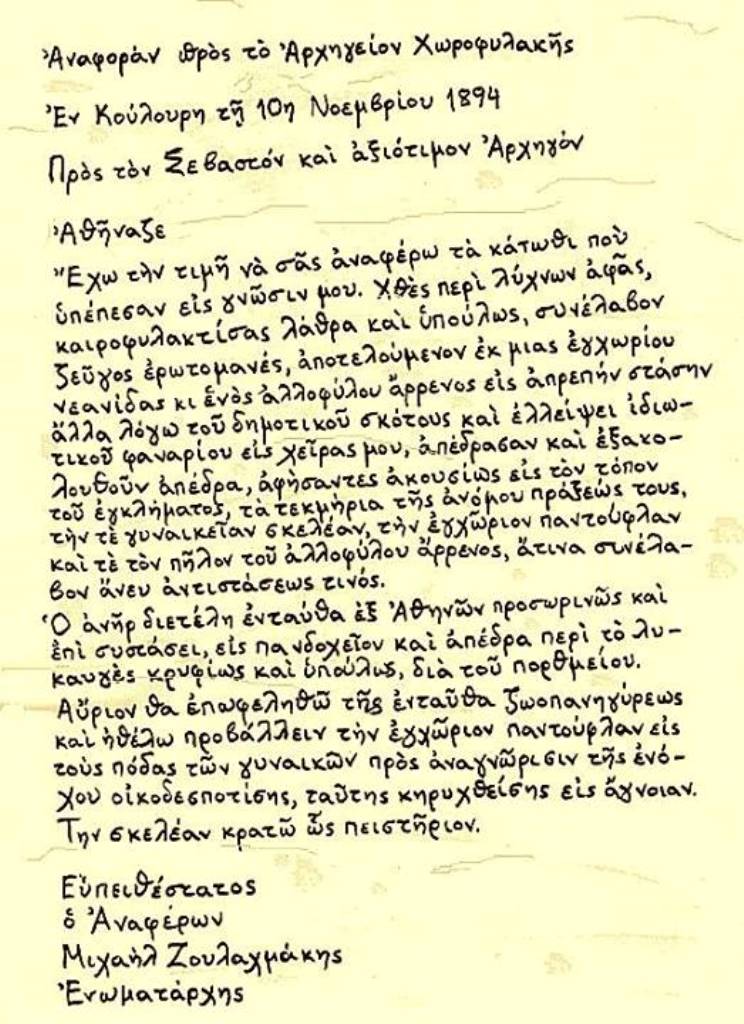 Ἀναφορὰν πρὸς τὸ Ἀρχηγεῖον Χωροφυλακῆς
Ἐν Κούλουρη τῇ 10η Νοεμβρίου 1894
Πρὸς τὸν Σεβαστόν καὶ ἀξιότιμον Ἀρχηγὸν
Ἀθήναζε
Ἔχω τὴν τιμῆ νὰ σᾶς ἀναφέρω τὰ κάτωθι ποὺ
ὑπέπεσαν εἰς γνῶσιν μου. Χθὲς περὶ λύχνων ἀφᾶς,
καιροφυλακτίσας λάθρα καὶ ὑπούλως, συνέλαβον
ζεῦγος ἐρωτομανές, ἀποτελούμενον ἐκ μιας ἐγχωρίου
νεανίδας κι ἑνὸς ἀλλοφύλου ἄρρενος εἰς ἀπρεπήν στάσην
ἄλλα λόγω τοῦ δημοτικοῦ σκότους καὶ ἐλλείψει ἰδιω-
τικοῦ φαναρίου εἰς χεῖρας μου, ἀπέδρασαν καὶ ἐξακο-
λουθοῦν ἀπέδρα, ἀφήσαντες ἀκουσίως εἰς τὸν τόπον
τοῦ ἐγκλήματος, τὰ τεκμήρια τῆς ἀνόμου πράξεώς τους,
τὴν τὲ γυναικεῖαν σκελέαν, τὴν ἐγχώριον παντούφλαν
καὶ τὲ τὸν πῆλον τοῦ ἀλλοφύλου ἄρρενος, ἅτινα συνέλα-
βον ἄνευ ἀντιστάσεως τινός.
Ὁ ἀνῆρ διετέλη ἐνταύθα ἐξ Ἀθηνῶν προσωρινῶς καὶ
ἐπὶ συστάσει, εἰς πανδοχεῖον καὶ ἀπέδρα περὶ τὸ λυ-
καυγὲς κρυφίως καὶ ὑπούλως, διὰ τοῦ πορθμείου.
Αὔριον θα ἐπωφεληθῶ τῆς ἐνταῦθα ζωοπανηγύρεως
καὶ ἠθέλω προβάλλειν τὴν ἐγχώριον παντούφλαν εἰς
τοὺς πόδας τῶν γυναικῶν πρὸς ἀναγνῶρισιν τῆς ἐνό-
χου οἰκοδεσποτίσης, ταῦτης κηρυχθείσης εἰς ἄγνοιαν.
Την σκελέαν κρατῶ ὣς πειστῆριον.
Εὐπειθέστατος
ὁ Ἀναφέρων
Μιχαὴλ Ζουλαχμάκης
Ἐνωματάρχης